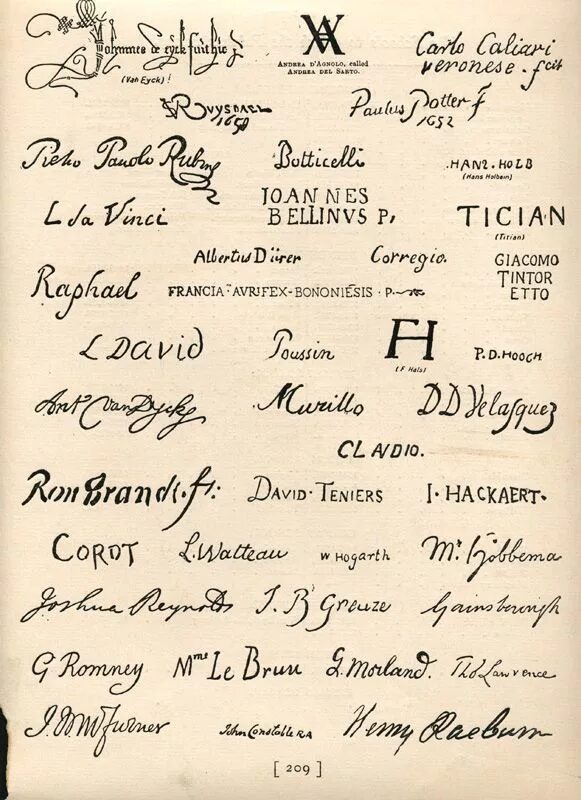 Johannes de eyck fuit hic
(Van Eyck)!
VA
ANDREA D'AGNOLO, called
ANDREA DEL SARTO.
Carlo Caliari
veronese. fcit
Ruysdael
1650
Paulus Potter f
1652
Pietro Pauolo Rubens
Botticelli
.HANS.HOLB
(Hans Holbein)
L da Vinci
JOANNES
BELLINVS P,
TICIAN
(Titian)
Albertus Dürer
Corregio.
GIACOMO
TINTOR
ETTO
Raphael
FRANCIA·AVRIFEX-BONONIĒSIS·P.
L DAVID
Poussin
FH
(F. Hals)
P.D.HOOCH
Antº Van Dyck
Murillo
D D Velasquez
CLAVDIO.
Rembrandt.ft:
DAVID·TENIERS
I·HACKAERT.
COROT
L.Watteau
W HOGARTH
Mt Hobbema
Joshua Reynolds
J.B Greuze
Gainsborough
G Romney
Mme Le Brun
G.Morland.
Tho Lawrence
J.M.W.Turner
John Constable RA
Henry Raeburn
[ 209 ]